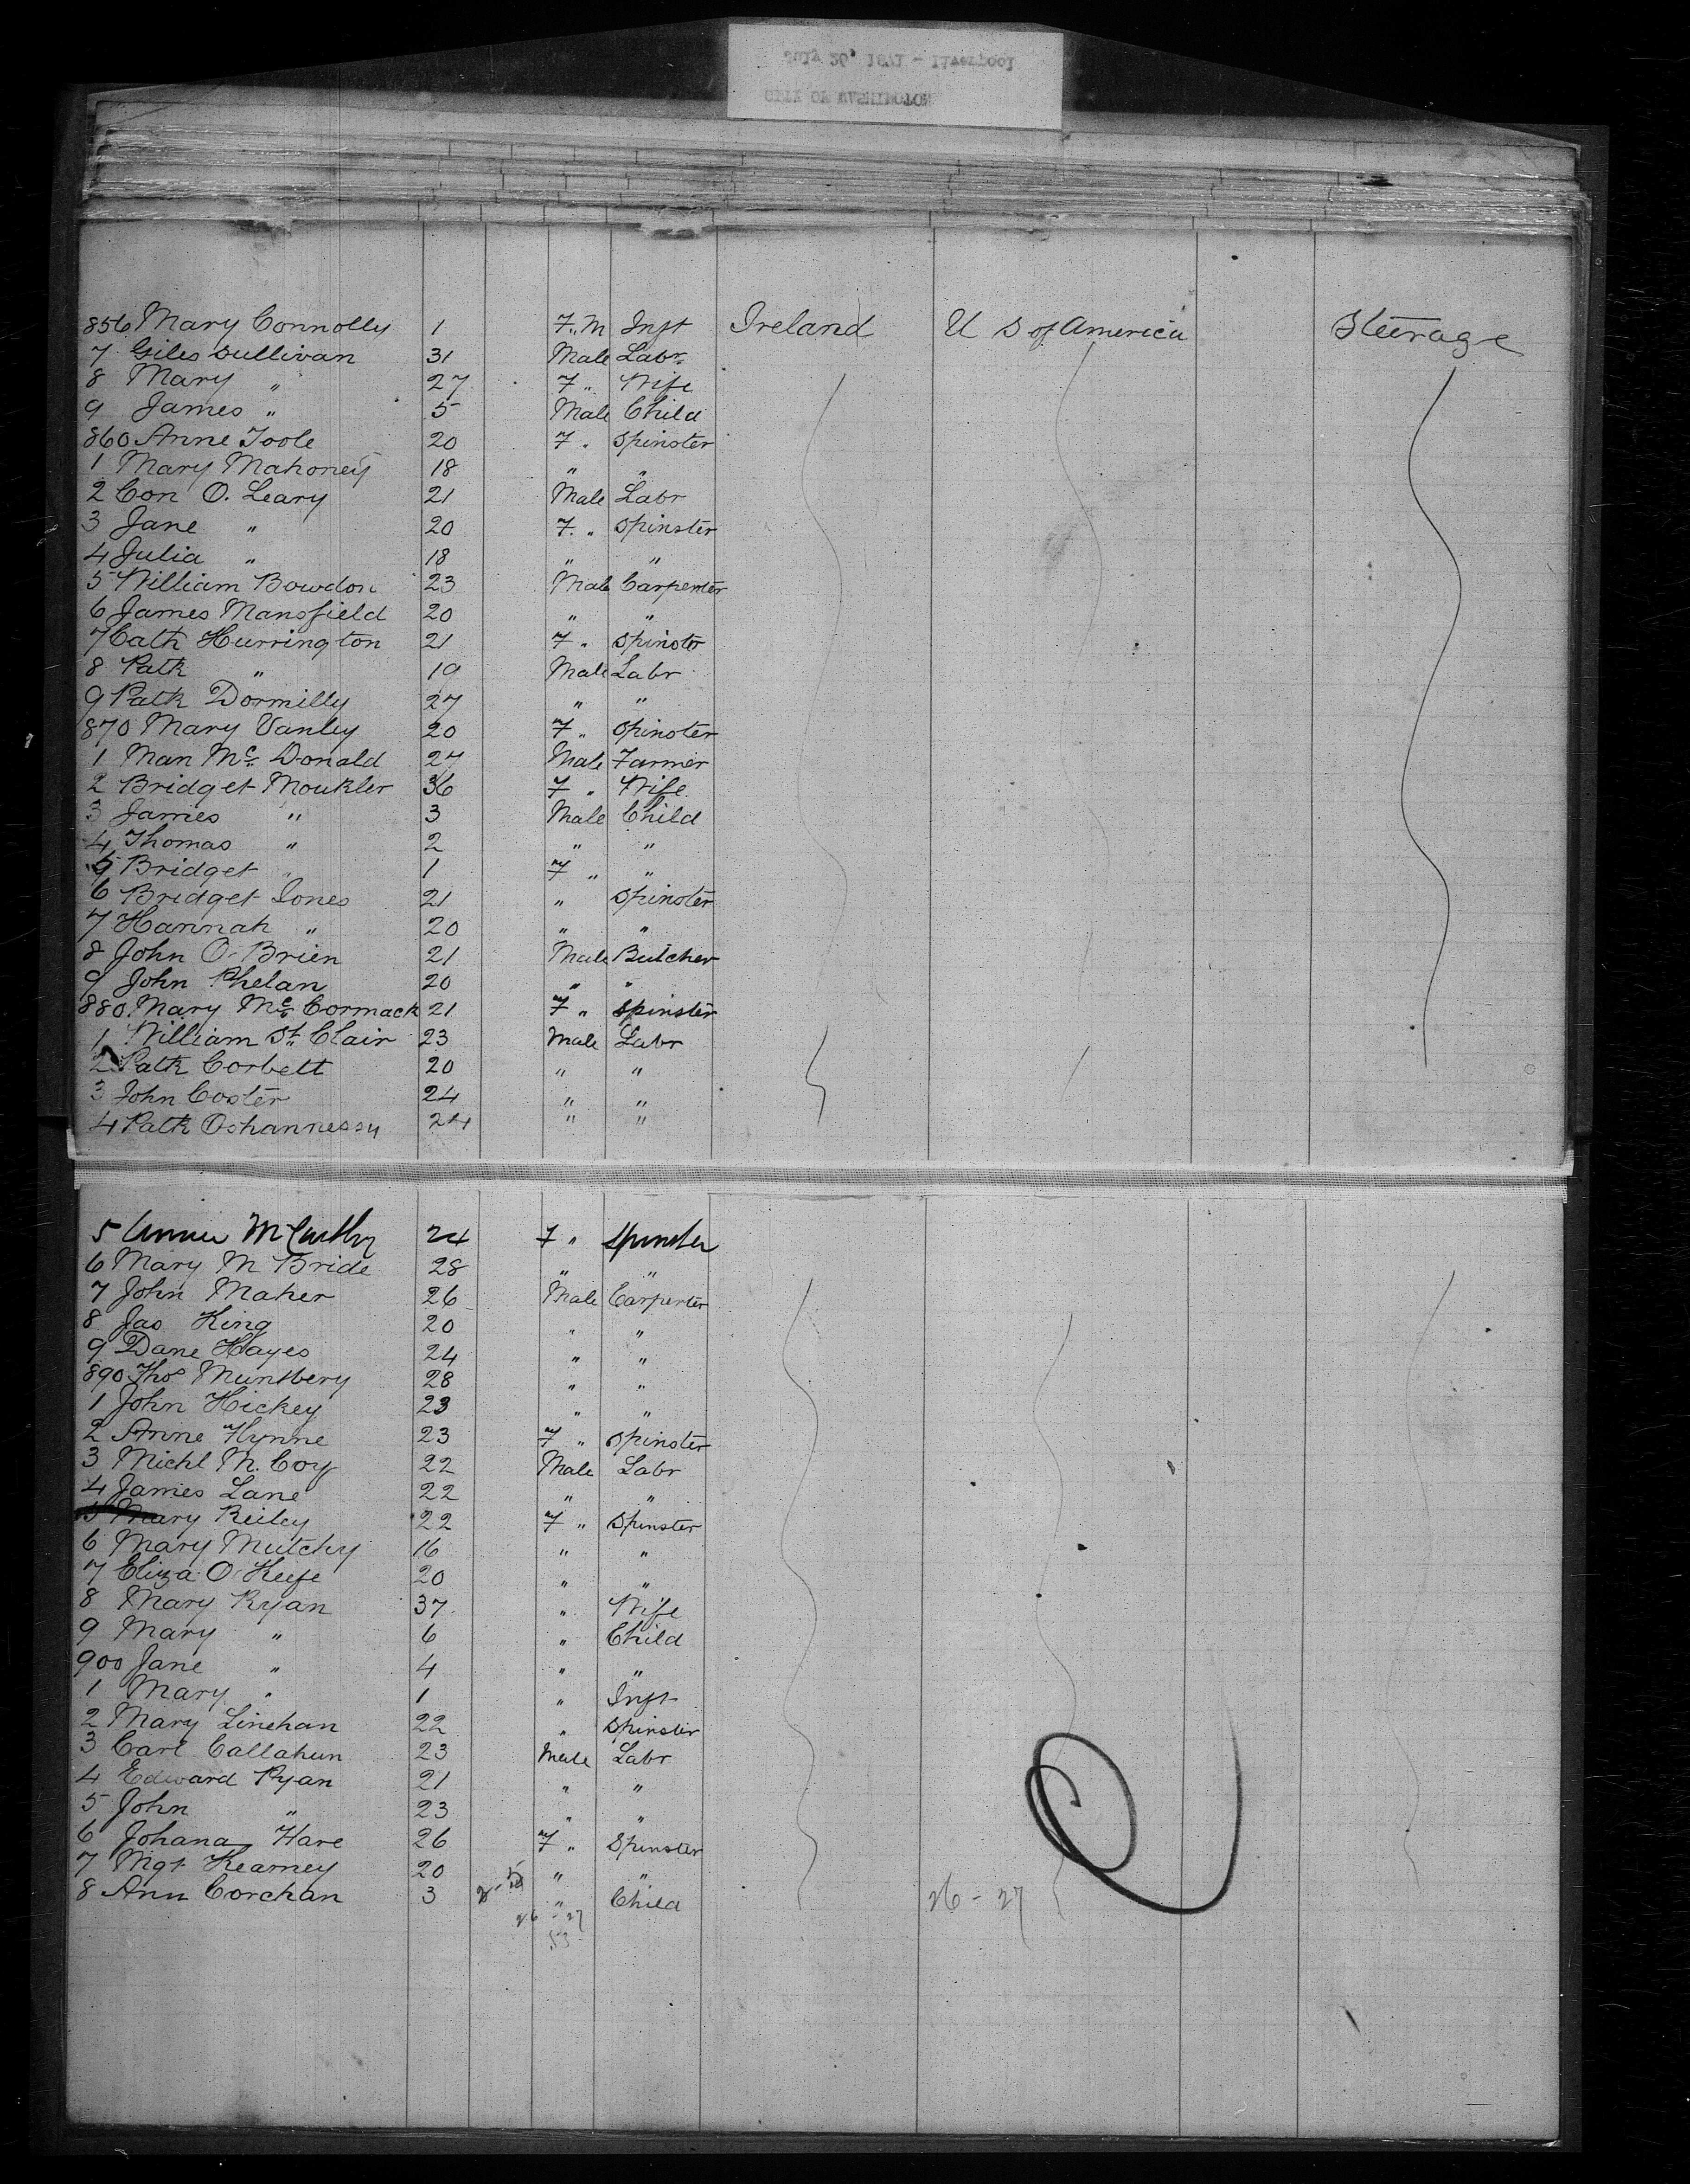 July 20' 1871 - Liverpool
CITY OF WASHINGTON
856 Mary Connolly 1 F. M Inft Ireland U S of America Steerage
7 Giles Sullivan 31 Male Labr
8 Mary " 27 F " Wife
9 James " 5 Male Child
860 Anne Toole 20 F " Spinster
1 Mary Mahoney 18 " "
2 Con O. Leary 21 Male Labr
3 Jane " 20 F. " Spinster
4 Julia " 18 " "
5 William Bowdon 23 Male Carpenter
6 James Mansfield 20 " "
7 Cath Hurrington 21 F " Spinster
8 Patk " 19 Male Labr
9 Patk Dormilly 27 " "
870 Mary Vanley 20 F " Spinster
1 Man Mc Donald 27 Male Farmer
2 Bridget Moukler 36 F " Wife
3 James " 3 Male Child
4 Thomas " 2 " "
5 Bridget " 1 F " "
6 Bridget Jones 21 " Spinster
7 Hannah " 20 " "
8 John O Brien 21 Male Butcher
9 John Phelan 20 " "
880 Mary Mc Cormack 21 F " Spinster
1 William St Clair 23 Male Labr
2 Patk Corbett 20 " "
3 John Coster 24 " "
4 Patk Oshannessy 24 " "
5 Annie McCarthy 24 F " Spinster
6 Mary M Bride 28 " "
7 John Maher 26 Male Carpenter
8 Jas King 20 " "
9 Dane Hayes 24 " "
890 Thos Muntbery 28 " "
1 John Hickey 23 " "
2 Anne Flynne 23 F " Spinster
3 Michl M. Coy 22 Male Labr
4 James Lane 22 " "
5 Mary Reiley 22 F " Spinster
6 Mary Mutchy 16 " "
7 Eliza O Keefe 20 " "
8 Mary Ryan 37 " Wife
9 Mary " 6 " Child
900 Jane " 4 " "
1 Mary " 1 " Inft
2 Mary Linehan 22 " Spinster
3 Carl Callahun 23 Male Labr
4 Edward Ryan 21 " "
5 John " 23 " "
6 Johana Hare 26 F " Spinster
7 Mgt Kearney 20 " "
8 Ann Corchan 3 " Child
26 - 27
26 - 27
53